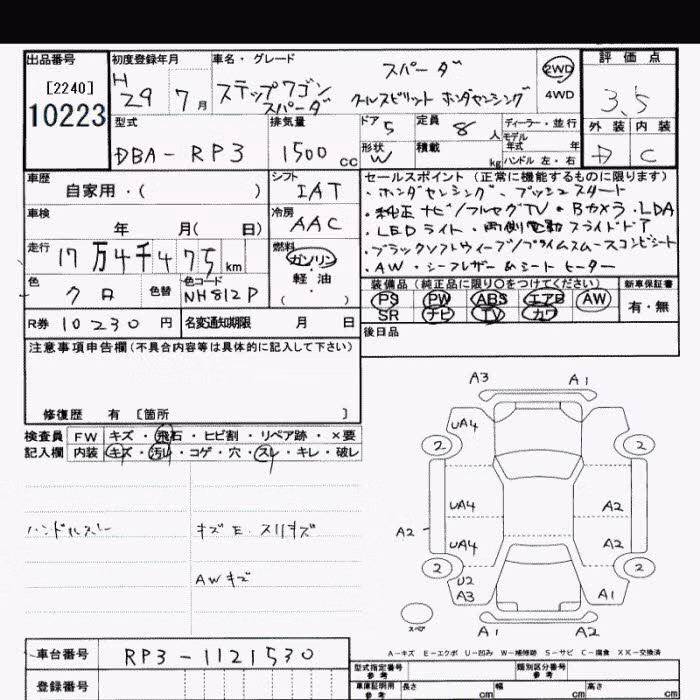 出品番号
[2240]
10223
初度登録年月
H
29 7月
車名・グレード
スパーダ
ステップワゴン
スパーダ クールスピリット ホンダセンシング
2WD
4WD
評価点
3.5
外装 内装
D C
型式
DBA-RP3
排気量
1500cc
ドア 5
形状 W
定員 8人
積載 kg
ディーラー・並行
モデル
年式 年
ハンドル 左・右
車歴
自家用・( )
シフト
IAT
車検
年 月( 日)
冷房
AAC
走行
17万4千475km
燃料
ガソリン
軽油
( )
色
クロ
色替
色コード
NH812P
R券 10230円
名変通知期限 月 日
セールスポイント(正常に機能するものに限ります)
・ホンダセンシング・プッシュスタート
・純正ナビ/フルセグTV・Bカメラ・LDA
・LEDライト・両側電動スライドドア
・ブラックソフトウィーブ/プライムスムースコンビシート
・AW・シーフレザー&シートヒーター
装備品(純正品に限り○をつけてください)
新車保証書
PS PW ABS エアB AW
SR ナビ TV カワ
有・無
後日品
注意事項申告欄(不具合内容等は具体的に記入して下さい)
修復歴 有 〔箇所 〕
検査員
記入欄
FW キズ・飛石・ヒビ割・リペア跡・×要
内装 キズ・汚レ・コゲ・穴・スレ・キレ・破レ
ハンドルスレ
キズE・スリキズ
AWキズ
A3 A1
UA4
2 2
UA4 A2
A2
UA4 A2
2 2
U2
A3 A1
スペア
A1 A2
A-キズ E-エクボ U-凹み W-補修跡 S-サビ C-腐食 XX-交換済
車台番号
RP3-1121530
登録番号
型式指定番号
参考
類別区分番号
参考
車庫証明用
参考
長さ cm 幅 cm 高さ cm